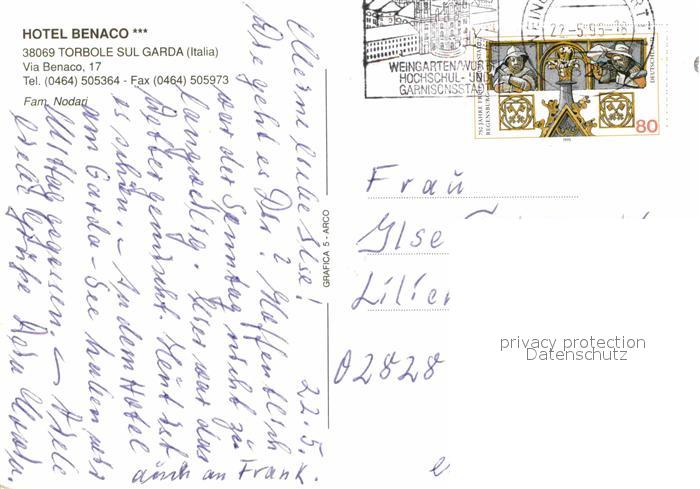 HOTEL BENACO ***
38069 TORBOLE SUL GARDA (Italia)
Via Benaco, 17
Tel. (0464) 505364 - Fax (0464) 505973
Fam. Nodari
22.5.
Meine liebe Ilse!
Wie geht es Dir? Hoffentlich
war der Sonntag nicht zu
langweilig. Hier war das
Wetter gemischt. Heut ist
es schön. - An dem Hotel
am Garda-See haben wir
Mittag gegessen. - Viele
liebe Grüße Deine
auch an Frank.
GRAFICA 5 - ARCO
WEINGARTEN/WÜRTT
HOCHSCHUL- UND
GARNISONSSTADT
22.-5.95-18
750 JAHRE FREIE REICHSSTADT
REGENSBURG
DEUTSCHE
80
1995
Frau
Ilse
Lilien
02828
privacy protection
Datenschutz